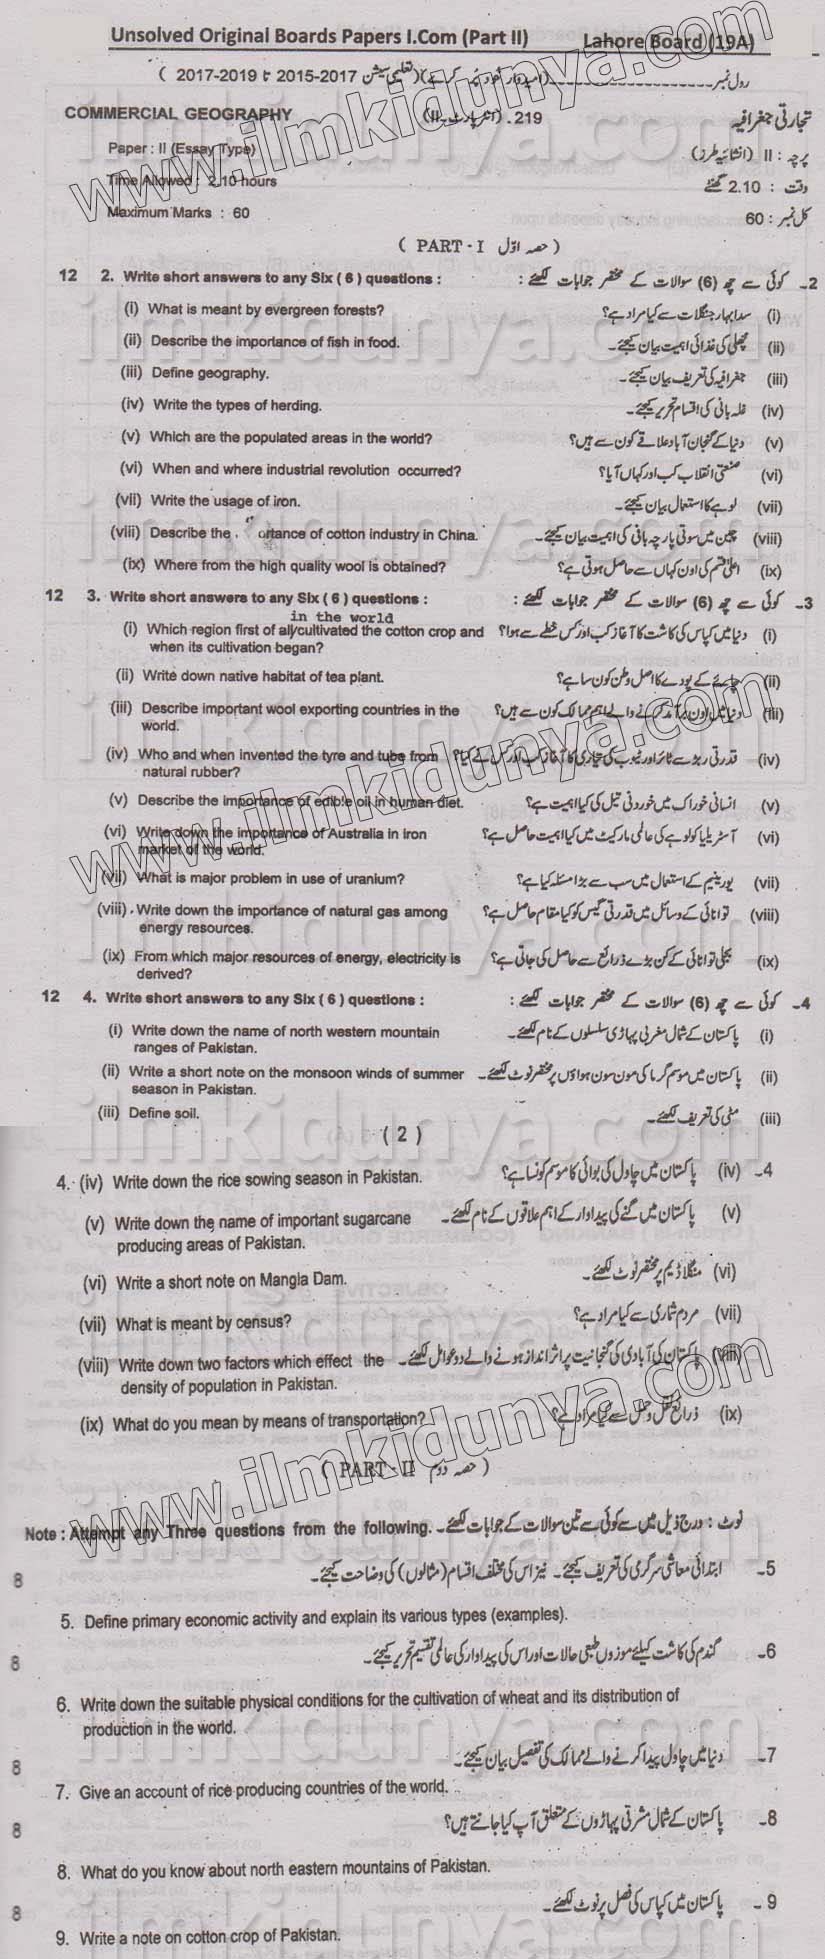 Unsolved Original Boards Papers I.Com (Part II) Lahore Board (19A)
رول نمبر---------------------(امیدوار خود پُر کرے)(تعلیمی سیشن 2015-2017 تا 2017-2019 )
COMMERCIAL GEOGRAPHY 219. (انٹر پارٹ۔II) تجارتی جغرافیہ
Paper : II (Essay Type) پرچہ : II (انشائیہ طرز)
Time Allowed : 2.10 hours وقت : 2.10 گھنٹے
Maximum Marks : 60 کل نمبر : 60
( PART - I حصہ اوّل )
12 2. Write short answers to any Six ( 6 ) questions : 2۔ کوئی سے چھ (6) سوالات کے مختصر جوابات لکھئے :
(i) What is meant by evergreen forests? (i) سدا بہار جنگلات سے کیا مراد ہے؟
(ii) Describe the importance of fish in food. (ii) مچھلی کی غذائی اہمیت بیان کیجئے۔
(iii) Define geography. (iii) جغرافیہ کی تعریف بیان کیجئے۔
(iv) Write the types of herding. (iv) غلہ بانی کی اقسام تحریر کیجئے۔
(v) Which are the populated areas in the world? (v) دنیا کے گنجان آباد علاقے کون سے ہیں؟
(vi) When and where industrial revolution occurred? (vi) صنعتی انقلاب کب اور کہاں آیا؟
(vii) Write the usage of iron. (vii) لوہے کا استعمال بیان کیجئے۔
(viii) Describe the ortance of cotton industry in China. (viii) چین میں سوتی پارچہ بافی کی اہمیت بیان کیجئے۔
(ix) Where from the high quality wool is obtained? (ix) اعلیٰ قسم کی اون کہاں سے حاصل ہوتی ہے؟
12 3. Write short answers to any Six ( 6 ) questions : 3۔ کوئی سے چھ (6) سوالات کے مختصر جوابات لکھئے :
in the world
(i) Which region first of all/cultivated the cotton crop and (i) دنیا میں کپاس کی کاشت کا آغاز کب اور کس خطے سے ہوا؟
when its cultivation began?
(ii) Write down native habitat of tea plant. (ii) چائے کے پودے کا اصل وطن کون سا ہے؟
(iii) Describe important wool exporting countries in the (iii) دنیا میں اون برآمد کرنے والے اہم ممالک کون سے ہیں؟
world.
(iv) Who and when invented the tyre and tube from (iv) قدرتی ربڑ سے ٹائر اور ٹیوب کی تیاری کا آغاز کب اور کس نے کیا؟
natural rubber?
(v) Describe the importance of edible oil in human diet. (v) انسانی خوراک میں خوردنی تیل کی کیا اہمیت ہے؟
(vi) Write down the importance of Australia in iron (vi) آسٹریلیا کو لوہے کی عالمی مارکیٹ میں کیا اہمیت حاصل ہے؟
market of the world.
(vii) What is major problem in use of uranium? (vii) یورینیم کے استعمال میں سب سے بڑا مسئلہ کیا ہے؟
(viii) Write down the importance of natural gas among (viii) توانائی کے وسائل میں قدرتی گیس کو کیا مقام حاصل ہے؟
energy resources.
(ix) From which major resources of energy, electricity is (ix) بجلی توانائی کے کن بڑے ذرائع سے حاصل کی جاتی ہے؟
derived?
12 4. Write short answers to any Six ( 6 ) questions : 4۔ کوئی سے چھ (6) سوالات کے مختصر جوابات لکھئے :
(i) Write down the name of north western mountain (i) پاکستان کے شمال مغربی پہاڑی سلسلوں کے نام لکھئے۔
ranges of Pakistan.
(ii) Write a short note on the monsoon winds of summer (ii) پاکستان میں موسم گرما کی مون سون ہواؤں پر مختصر نوٹ لکھئے۔
season in Pakistan.
(iii) Define soil. (iii) مٹی کی تعریف لکھئے۔
( 2 )
4. (iv) Write down the rice sowing season in Pakistan. 4۔ (iv) پاکستان میں چاول کی بوائی کا موسم کونسا ہے؟
(v) Write down the name of important sugarcane (v) پاکستان میں گنے کی پیداوار کے اہم علاقوں کے نام لکھئے۔
producing areas of Pakistan.
(vi) Write a short note on Mangla Dam. (vi) منگلا ڈیم پر مختصر نوٹ لکھئے۔
(vii) What is meant by census? (vii) مردم شماری سے کیا مراد ہے؟
(viii) Write down two factors which effect the (viii) پاکستان کی آبادی کی گنجانیت پر اثر انداز ہونے والے دو عوامل لکھئے۔
density of population in Pakistan.
(ix) What do you mean by means of transportation? (ix) ذرائع نقل و حمل سے کیا مراد ہے؟
( PART - II حصہ دوم )
Note : Attempt any Three questions from the following. نوٹ : درج ذیل میں سے کوئی سے تین سوالات کے جوابات لکھئے۔
8 5۔ ابتدائی معاشی سرگرمی کی تعریف کیجئے۔ نیز اس کی مختلف اقسام (مثالوں) کی وضاحت کیجئے۔
5. Define primary economic activity and explain its various types (examples).
8 6۔ گندم کی کاشت کیلئے موزوں طبعی حالات اور اس کی پیداوار کی عالمی تقسیم تحریر کیجئے۔
6. Write down the suitable physical conditions for the cultivation of wheat and its distribution of
production in the world.
8 7۔ دنیا میں چاول پیدا کرنے والے ممالک کی تفصیل بیان کیجئے۔
7. Give an account of rice producing countries of the world.
8 8۔ پاکستان کے شمال مشرقی پہاڑوں کے متعلق آپ کیا جانتے ہیں؟
8. What do you know about north eastern mountains of Pakistan.
8 9۔ پاکستان میں کپاس کی فصل پر نوٹ لکھئے۔
9. Write a note on cotton crop of Pakistan.
www.ilmkidunya.com
www.ilmkidunya.com
www.ilmkidunya.com
ilmkidunya.com